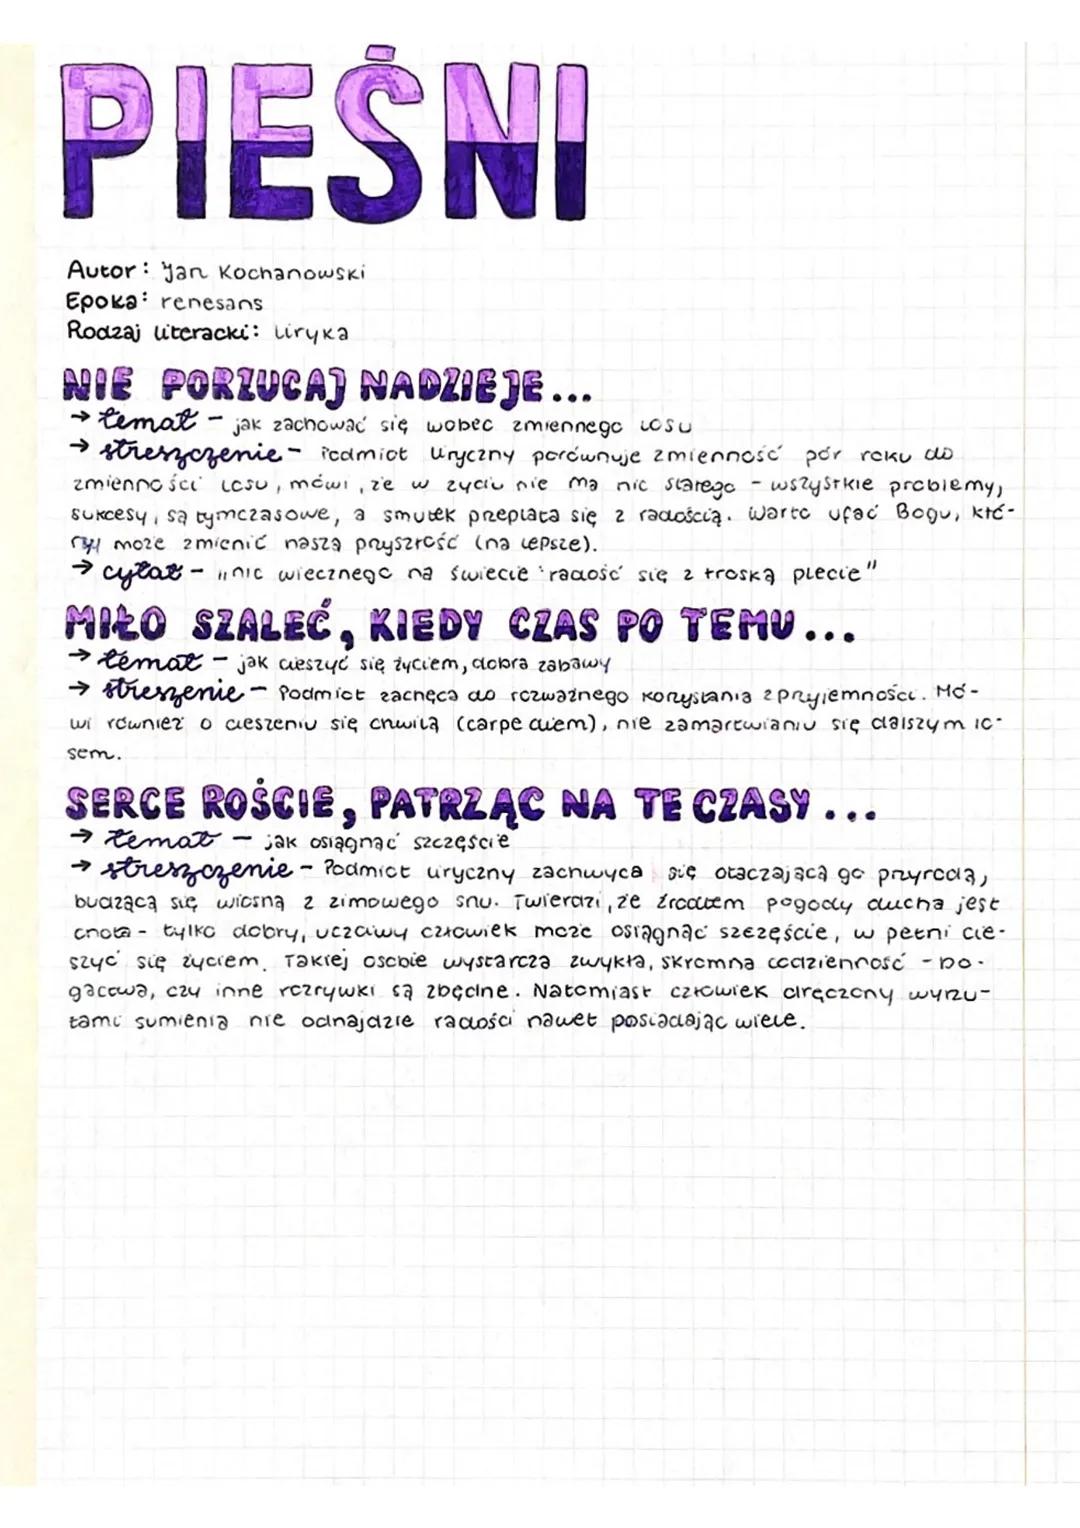 PIEŚNI
Autor: Jan Kochanowski
Epoka: renesans
Rodzaj literacki: liryka
NIE PORZUCAJ NADZIEJE...
→ temat - jak zachować się wobec zmiennego losu
→ streszczenie - Podmiot liryczny porównuje zmienność pór roku do
zmienności losu, mówi, że w życiu nie ma nic stałego - wszystkie problemy,
sukcesy, są tymczasowe, a smutek przeplata się z radością. Warto ufać Bogu, któ-
ry może zmienić naszą przyszłość (na lepsze).
→ cytat - „nic wiecznego na świecie radość się z troską plecie"
MIŁO SZALEĆ, KIEDY CZAS PO TEMU...
→ temat - jak cieszyć się życiem, dobra zabawy
→ streszenie - Podmiot zachęca do rozważnego korzystania z przyjemności. Mó-
wi również o cieszeniu się chwilą (carpe diem), nie zamartwianiu się dalszym lo-
sem.
SERCE ROŚCIE, PATRZĄC NA TE CZASY...
→ temat - jak osiągnąć szczęście
→ streszczenie - Podmiot liryczny zachwyca się otaczającą go przyrodą,
budzącą się wiosną z zimowego snu. Twierdzi, że źródłem pogody ducha jest
cnota - tylko dobry, uczciwy człowiek może osiągnąć szczęście, w pełni cie-
szyć się życiem. Takiej osobie wystarcza zwykła, skromna codzienność - bo-
gactwa, czy inne rozrywki są zbędne. Natomiast człowiek dręczony wyrzu-
tami sumienia nie odnajdzie radości nawet posiadając wiele.